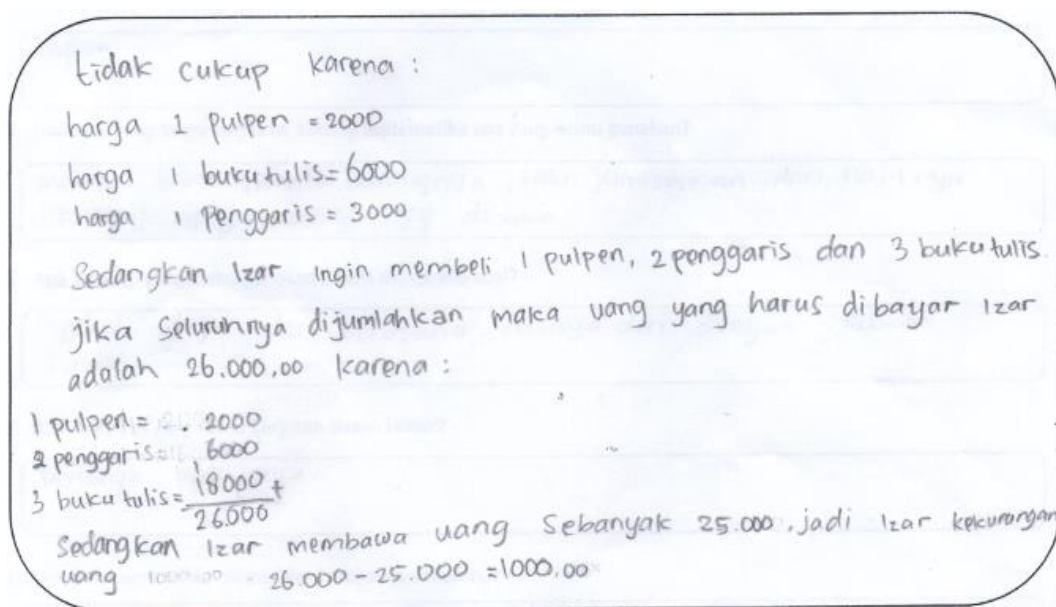 tidak cukup karena :
harga 1 pulpen = 2000
harga 1 buku tulis = 6000
harga 1 Penggaris = 3000
Sedangkan Izar ingin membeli 1 pulpen, 2 penggaris dan 3 buku tulis.
jika seluruhnya dijumlahkan maka uang yang harus dibayar Izar
adalah 26.000,00 karena :
1 pulpen = 2000
2 penggaris = 6000
3 buku tulis = 18000 +
26000
Sedangkan Izar membawa uang Sebanyak 25.000, jadi Izar kekurangan
uang 1000,00 26.000 - 25.000 = 1000,00